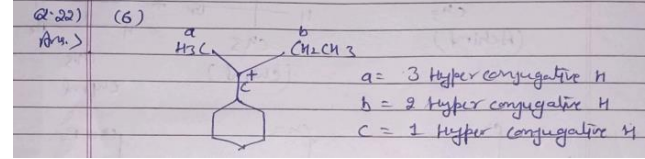 Q.22) (6)
Ans.> a b
H3C CH2CH3
+
C
a = 3 Hyper conjugative H
b = 2 Hyper conjugative H
C = 1 Hyper conjugative H